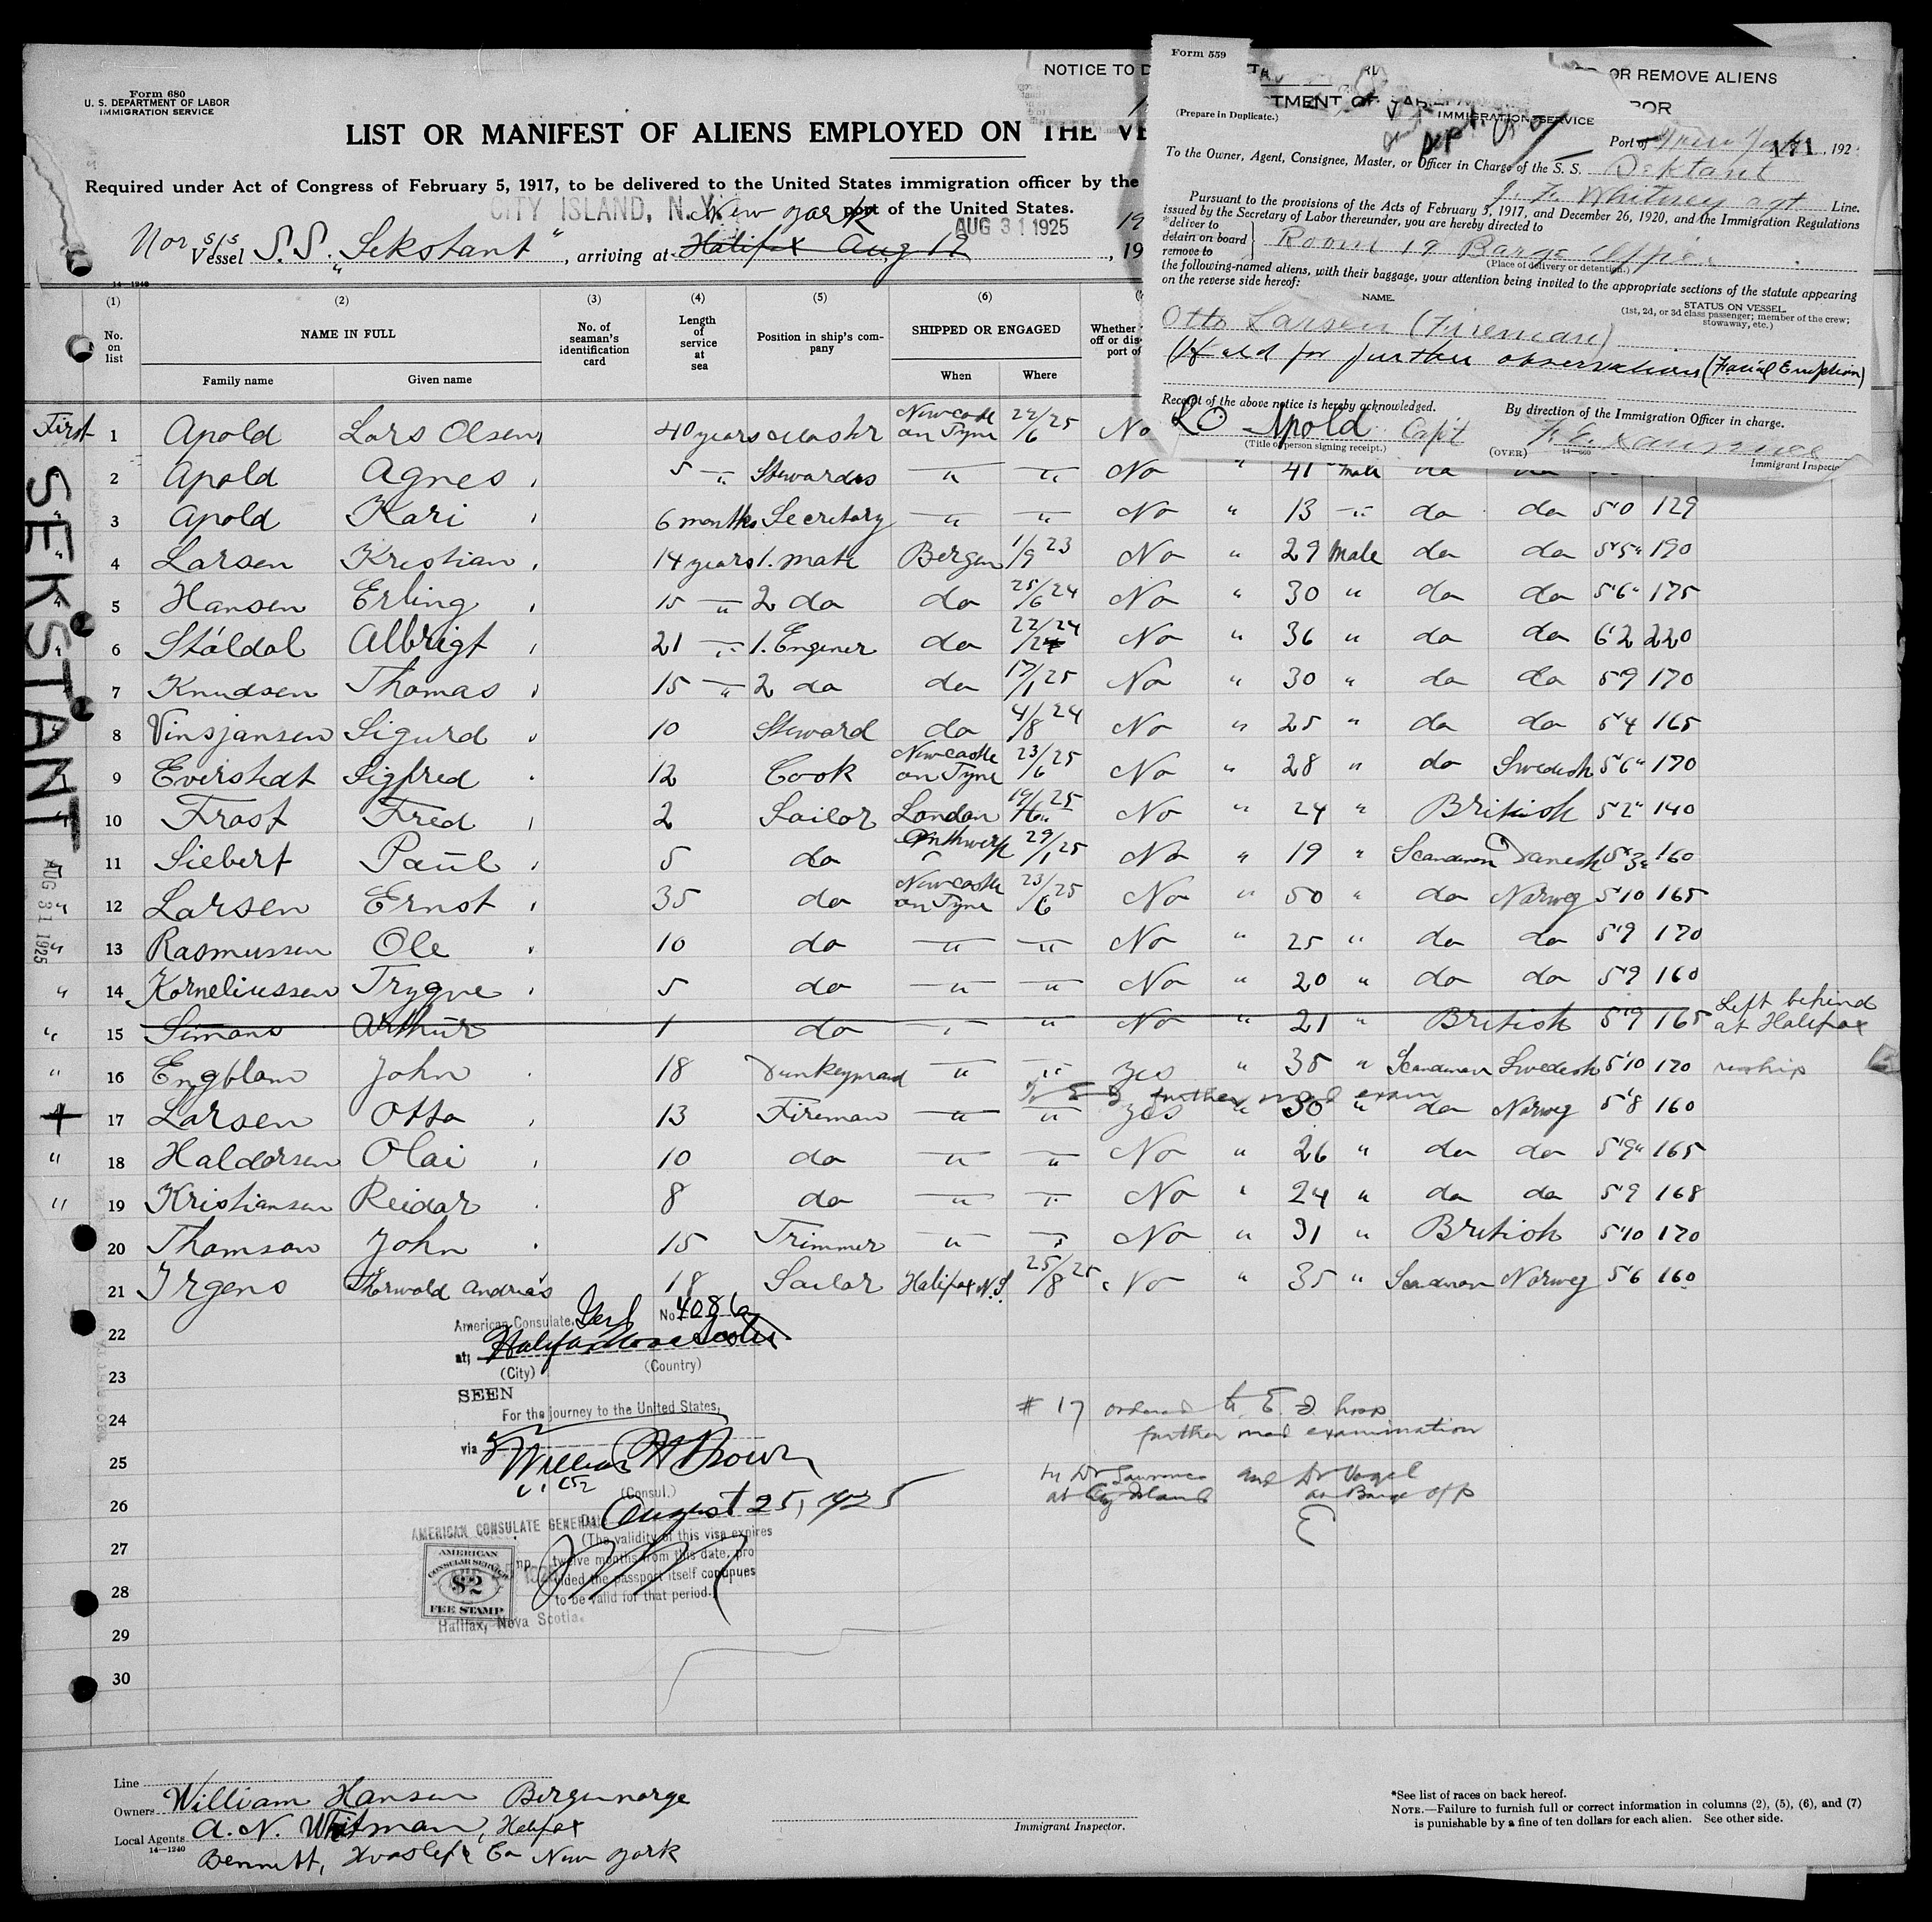 Form 680
U. S. DEPARTMENT OF LABOR
IMMIGRATION SERVICE
LIST OR MANIFEST OF ALIENS EMPLOYED ON THE VE
Required under Act of Congress of February 5, 1917, to be delivered to the United States immigration officer by the
port of the United States.
CITY ISLAND, N. Y. New York AUG 31 1925
Nor s/s Vessel S.S. "Sekstant", arriving at Halifax Aug 19, 19
NOTICE TO D
OR REMOVE ALIENS
Form 559
(Prepare in Duplicate.)
TMENT OF LABOR
IMMIGRATION SERVICE
Port of New York 171, 192
To the Owner, Agent, Consignee, Master, or Officer in Charge of the S. S. Sektant
J. F. Whitney agt Line.
Pursuant to the provisions of the Acts of February 5, 1917, and December 26, 1920, and the Immigration Regulations
issued by the Secretary of Labor thereunder, you are hereby directed to
*deliver to
detain on board
remove to
Room 19 Barge Office
(Place of delivery or detention.)
the following-named aliens, with their baggage, your attention being invited to the appropriate sections of the statute appearing
on the reverse side hereof:
NAME.
STATUS ON VESSEL
(1st, 2d, or 3d class passenger; member of the crew;
stowaway, etc.)
Otto Larsen (Fireman)
(Held for further observations (Facial Eruption)
Receipt of the above notice is hereby acknowledged.
By direction of the Immigration Officer in charge.
LO Apold Capt
(Title of person signing receipt.)
(OVER)
14—660
Immigrant Inspecto
14—1240
(1) (2) (3) (4) (5) (6)
No. on list
NAME IN FULL
Family name Given name
No. of seaman's identification card
Length of service at sea
Position in ship's company
SHIPPED OR ENGAGED
When Where
Whether
off or dis
port of
First 1 Apold Lars Olsen 40 years Mastr Newcastle on Tyne 22/6 25 No
2 Apold Agnes 5 " Stewardes " " No " 41 male da da
3 Apold Kari 6 months Secretary " " No " 13 " da da 5'0 129
4 Larsen Kristian 14 years 1. mate Bergen 1/9 23 No " 29 Male da da 5'5" 190
5 Hansen Erling 15 " 2 do do 25/6 24 No " 30 " da da 5'6" 175
6 Støldal Albrigt 21 " 1. Enginer do 22/24 No " 36 " da da 6'2 220
7 Knudsen Thomas 15 " 2 do do 17/1 25 No " 30 " da da 5'9 170
8 Vinsjansen Sigurd 10 Steward do 4/8 24 No " 25 " da da 5'4 165
9 Everstedt Sigfred 12 Cook Newcastle on Tyne 23/6 25 No " 28 " do Swedish 5'6" 170
10 Frost Fred 2 Sailor London 25 No " 24 " British 5'2" 140
11 Siebert Paul 5 do Anthwerp 29/1 25 No " 19 " Scandinav Danesh 5'3" 160
12 Larsen Ernst 35 do Newcastle on Tyne 23/6 25 No " 50 " do Norweg 5'10 165
13 Rasmussen Ole 10 do " " No " 25 " da da 5'9 170
14 Korneliussen Trygve 5 do " " No " 20 " da da 5'9 160
15 Simans Arthur 1 do " " No " 21 " British 5'9 165 Left behind at Halifax
16 Engblom John 18 Dunkeyman " " Yes " 35 " Scandinav Swedish 5'10 170 reship
to E I further med exam
17 Larsen Otto 13 Fireman " " Yes " 30 " da Norweg 5'8 160
18 Haldorsen Olai 10 do " " No " 26 " da da 5'9" 165
19 Kristiansen Reidar 8 do " " No " 24 " da da 5'9 168
20 Thomson John 15 Trimmer " " No " 31 " British 5'10 170
21 Irgens Thorvald Andrias 18 Sailor Halifax N.S. 25/8 25 No " 35 " Scandinav Norweg 5'6 160
22
23
24
25
26
27
28
29
30
SEKSTANT
AUG 31 1925
American Consulate Genl No 4086
at Halifax Nova Scotia
(City) (Country)
SEEN
For the journey to the United States,
via
William H Brown
(Consul.)
Date August 25, 1925
AMERICAN CONSULATE GENERAL
(The validity of this visa expires
twelve months from this date, pro
vided the passport itself continues
to be valid for that period.)
AMERICAN
CONSULAR SERVICE
$2
FEE STAMP
Halifax, Nova Scotia.
# 17 ordered to E. I. hosp
further med examination
by Dr Lawrence and Dr Vogel
at City Island at Barge Off
E
Line
Owners William Hansen Bergen norge
Local Agents A. N. Whitman, Halifax
14—1240
Bennett, Hvoslef & Co New York
Immigrant Inspector.
*See list of races on back hereof.
NOTE.—Failure to furnish full or correct information in columns (2), (5), (6), and (7)
is punishable by a fine of ten dollars for each alien. See other side.